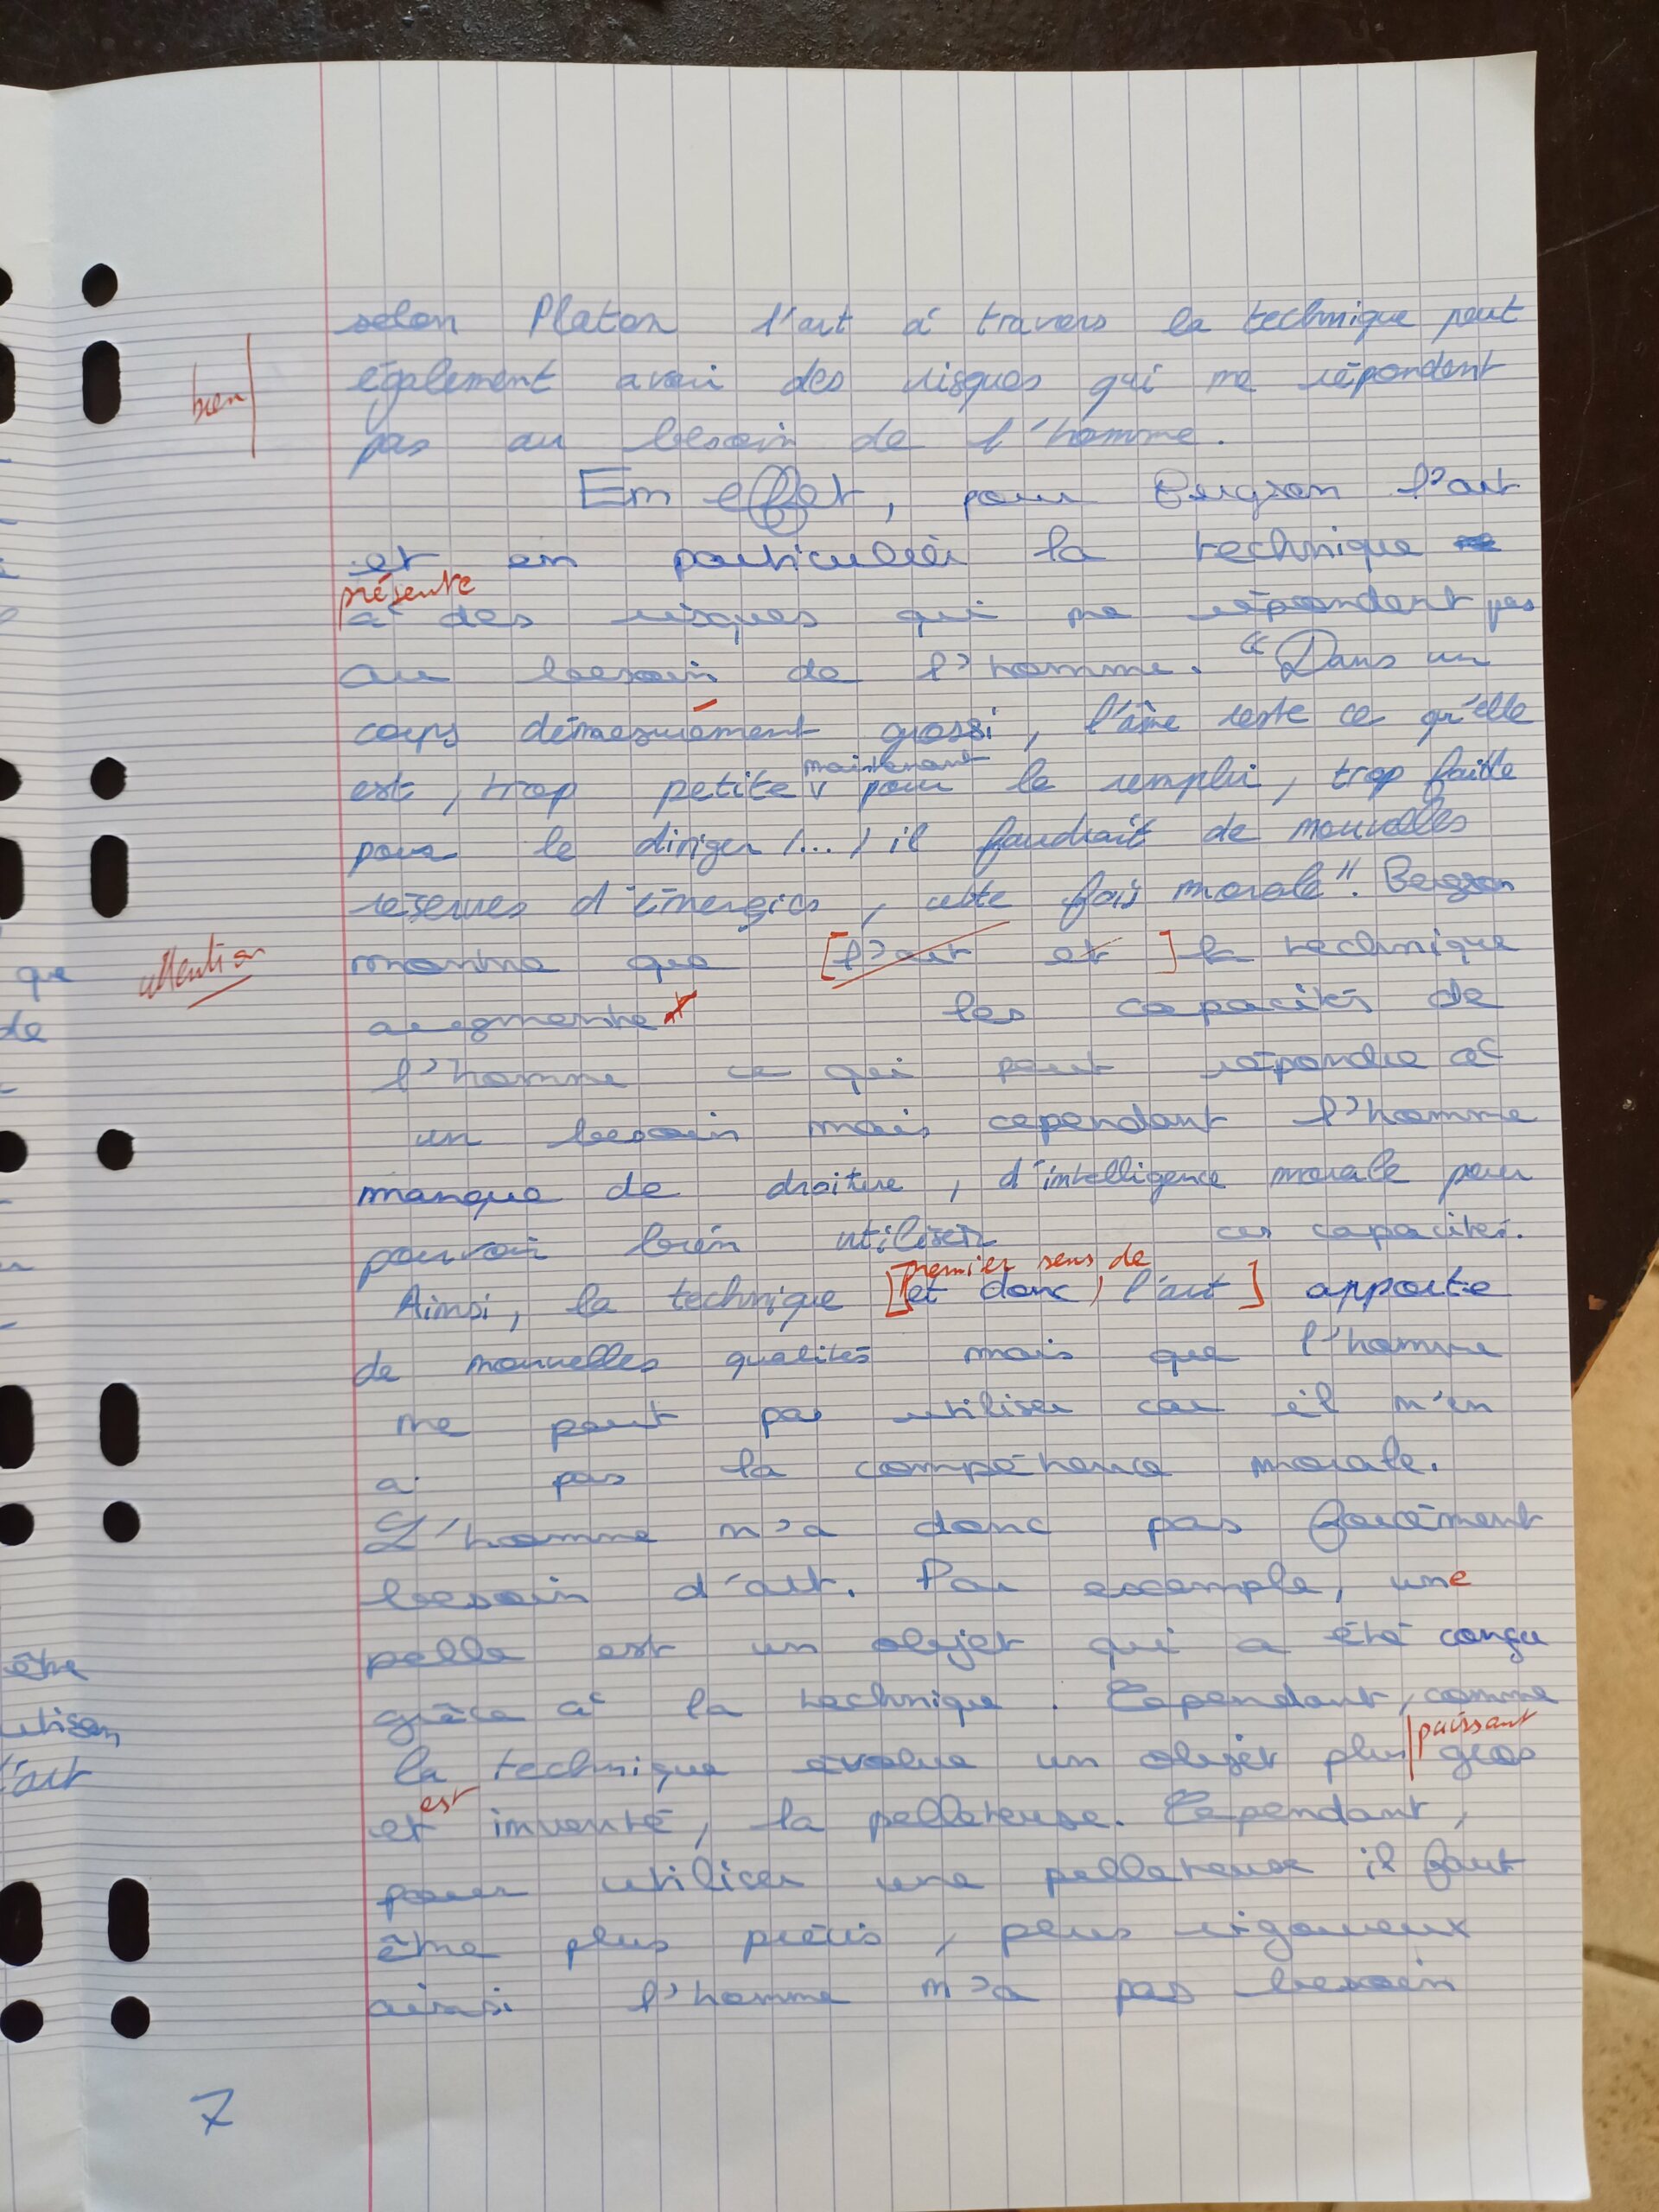 selon Platon l'art à travers la technique peut
bien
également avoir des risques qui ne répondent
pas au besoin de l'homme.
En effet, pour Bergson l'art
et en particulier la technique
présente
à des risques qui ne répondent pas
au besoin de l'homme. "Dans un
corps démesurément grossi, l'âme reste ce qu'elle
maintenant
est, trop petite pour le remplir, trop faible
pour le diriger /.../ il faudrait de nouvelles
réserves d'énergies, cette fois morale". Bergson
que attention
montre que [l'art et] la technique
de
augmente les capacités de
l'homme ce qui peut répondre à
un besoin mais cependant l'homme
manque de droiture, d'intelligence morale pour
pouvoir bien utiliser ces capacités.
premier sens de
Ainsi, la technique [et donc, l'art] apporte
de nouvelles qualités mais que l'homme
ne peut pas utiliser car il n'en
a pas la compétence morale.
L'homme n'a donc pas forcément
besoin d'art. Par exemple, une
être
pelle est un objet qui a été conçu
grâce à la technique. Cependant, comme
puissant
l'art
la technique évolue un objet plus gros
est
et inventé, la pelleteuse. Cependant,
pour utiliser une pelleteuse il faut
être plus précis, plus rigoureux
ainsi l'homme n'a pas besoin
7